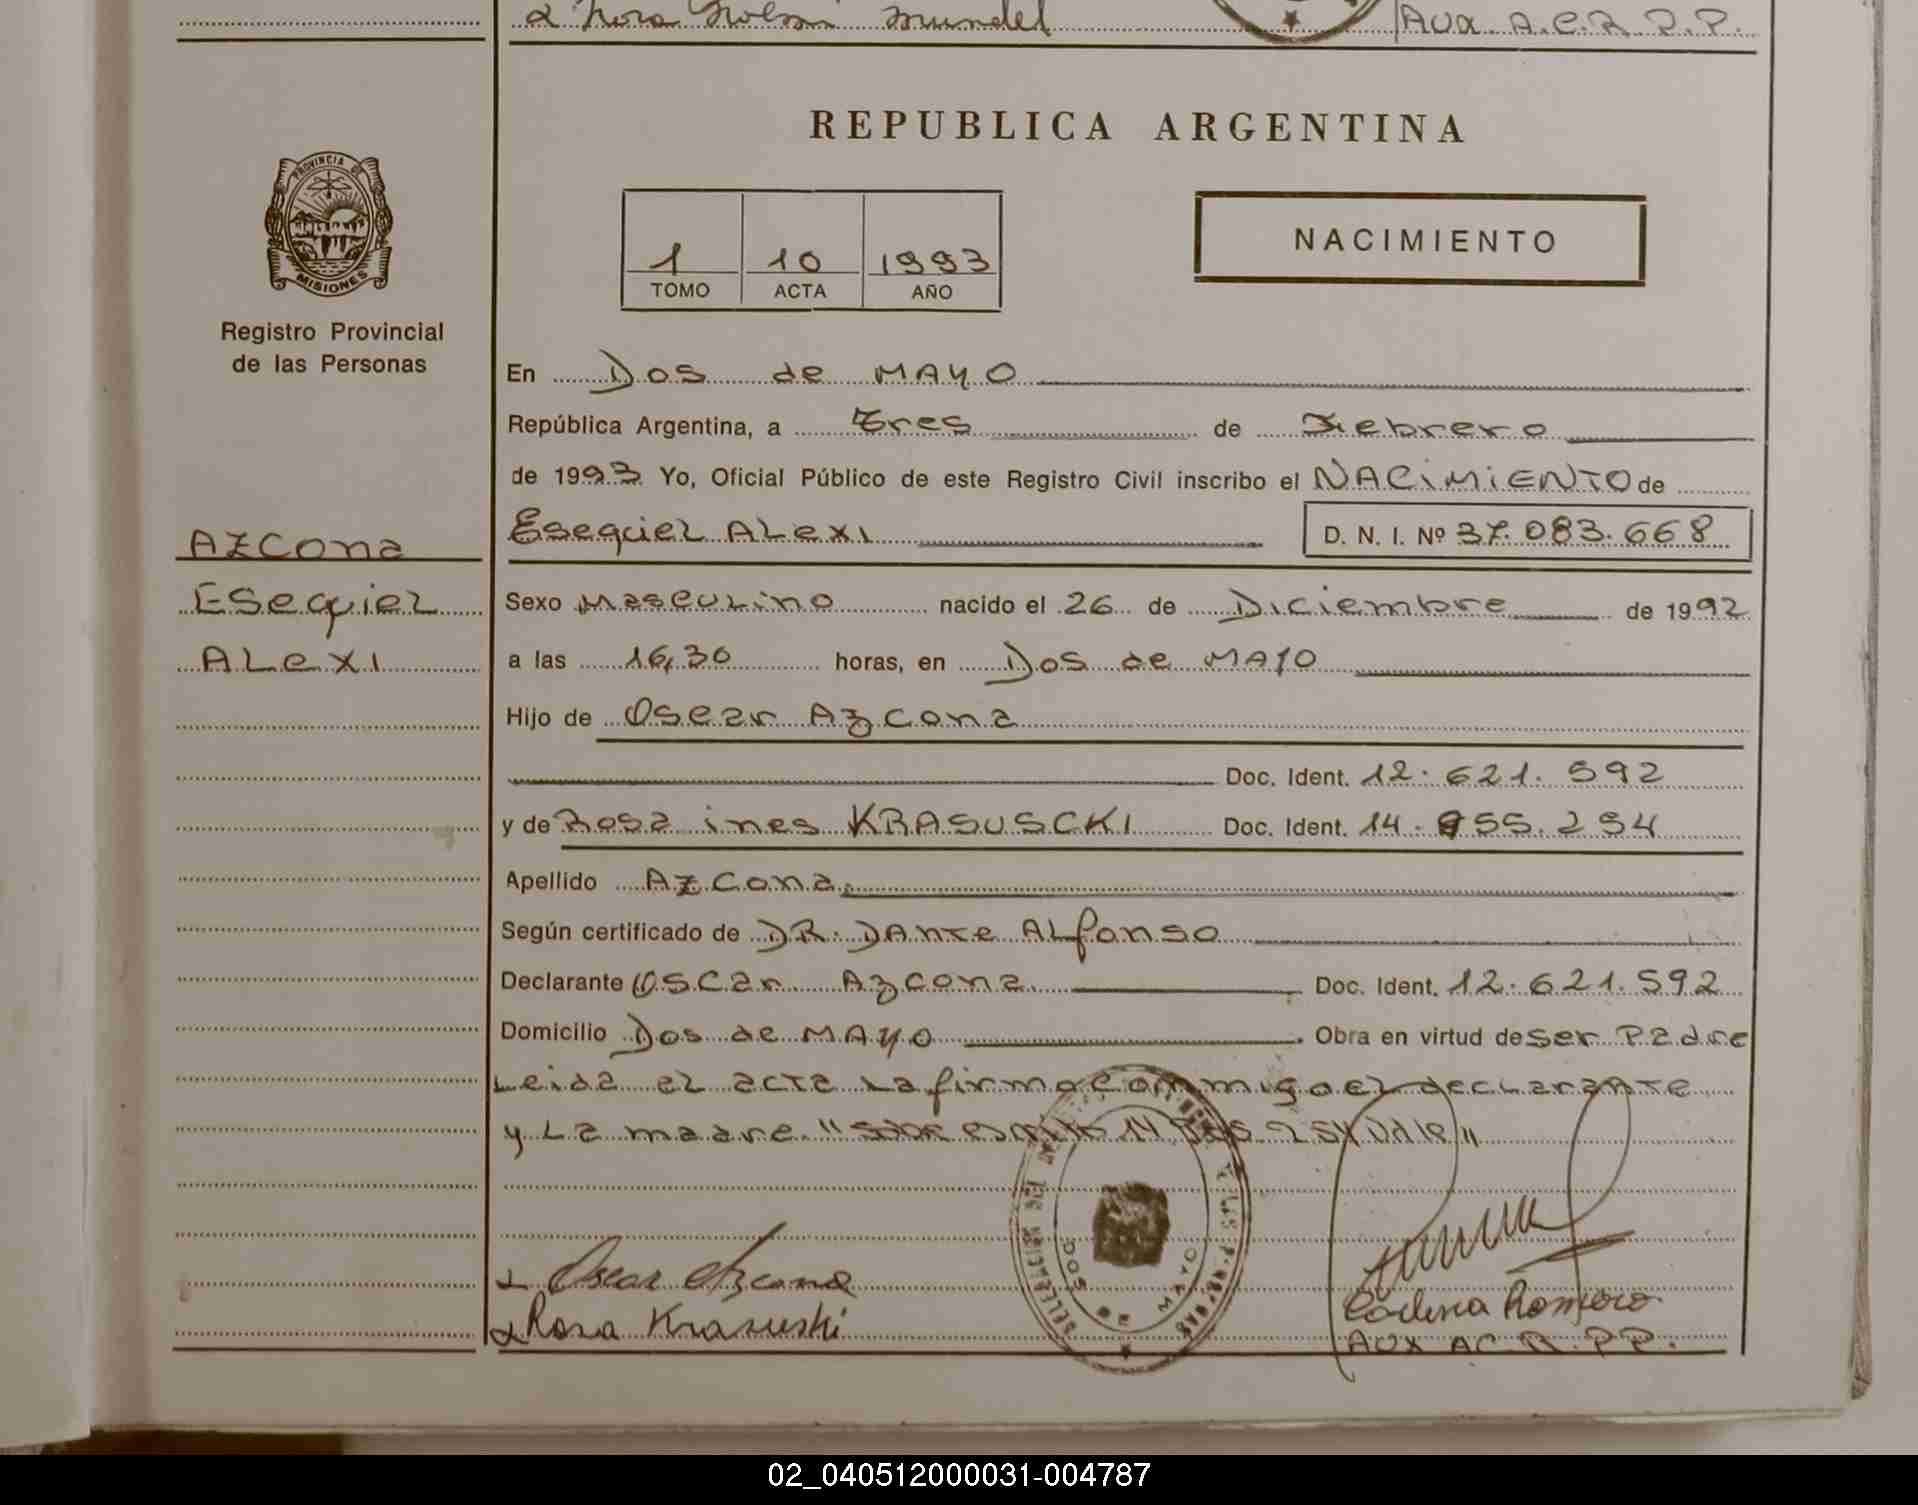 Aux. A.C.R.P.P.
REPUBLICA ARGENTINA
PROVINCIA DE
MISIONES
Registro Provincial
de las Personas
1 10 1993
TOMO ACTA AÑO
NACIMIENTO
En Dos de MAYO
República Argentina, a tres de Febrero
de 1993 Yo, Oficial Público de este Registro Civil inscribo el NACIMIENTO de
AZCona
Esequiel ALexi D. N. I. Nº 37.083.668
Esequiel
ALexi
Sexo Masculino nacido el 26 de Diciembre de 1992
a las 16,30 horas, en Dos de MAYO
Hijo de Oscar Azcona
Doc. Ident. 12.621.592
y de Rosa ines KRASUSCKI Doc. Ident. 14.955.254
Apellido Azcona
Según certificado de DR. DAnte ALfonso
Declarante Oscar Azcona Doc. Ident. 12.621.592
Domicilio Dos de MAYO Obra en virtud de ser Padre
Leida el acta la firma conmigo el declarante
y La madre.
DOS DE MAYO
Oscar Azcona
Rosa Krasuski
Romero
AUX A.C.R.P.P.
02_040512000031-004787